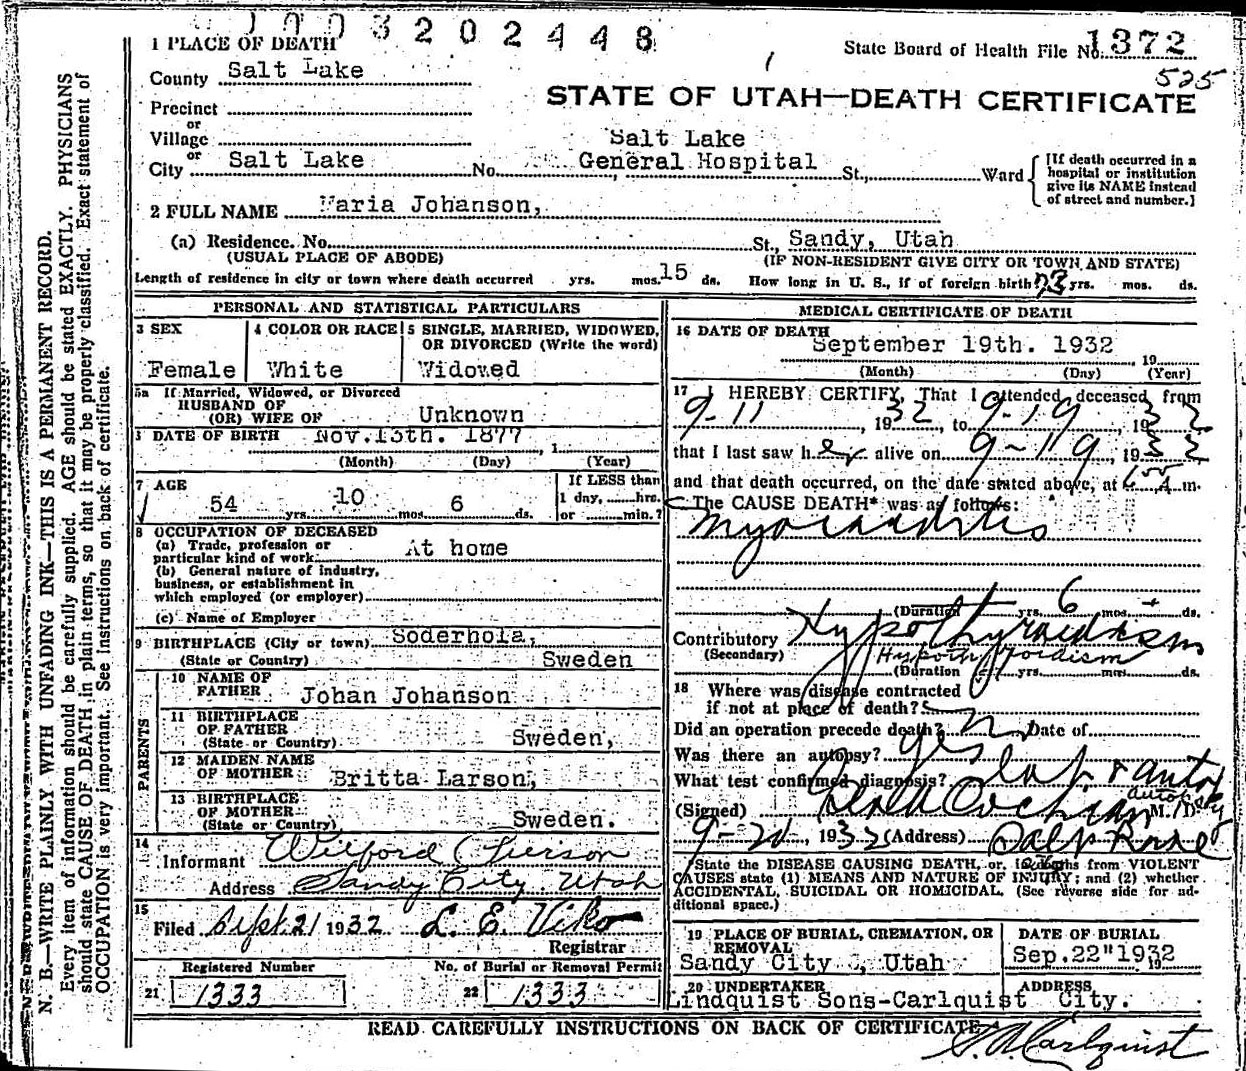 1003202448
1 PLACE OF DEATH
State Board of Health File No. 1372
525
County Salt Lake
STATE OF UTAH—DEATH CERTIFICATE
Precinct
or
Village
Salt Lake
or
City Salt Lake No. General Hospital St., Ward
[If death occurred in a
hospital or institution
give its NAME instead
of street and number.]
2 FULL NAME Maria Johanson,
(a) Residence. No. St., Sandy, Utah
(USUAL PLACE OF ABODE) (IF NON-RESIDENT GIVE CITY OR TOWN AND STATE)
Length of residence in city or town where death occurred yrs. mos. 15 ds. How long in U. S., if of foreign birth? yrs. mos. ds.
PERSONAL AND STATISTICAL PARTICULARS
3 SEX
Female
4 COLOR OR RACE
White
5 SINGLE, MARRIED, WIDOWED,
OR DIVORCED (Write the word)
Widowed
5a If Married, Widowed, or Divorced
HUSBAND OF
(OR) WIFE OF Unknown
DATE OF BIRTH Nov. 13th. 1877 , 1
(Month) (Day) (Year)
7 AGE
54 yrs. 10 mos. 6 ds.
If LESS than
1 day, hrs.
or min.?
8 OCCUPATION OF DECEASED
(a) Trade, profession or
particular kind of work At home
(b) General nature of industry,
business, or establishment in
which employed (or employer)
(c) Name of Employer
9 BIRTHPLACE (City or town) Soderhola,
(State or Country) Sweden
PARENTS
10 NAME OF
FATHER Johan Johanson
11 BIRTHPLACE
OF FATHER
(State or Country) Sweden,
12 MAIDEN NAME
OF MOTHER Britta Larson,
13 BIRTHPLACE
OF MOTHER
(State or Country) Sweden.
14
Informant Wilford Pierson
Address Sandy City Utah
15
Filed Sept. 21 1932 L. E. Viko
Registrar
Registered Number No. of Burial or Removal Permit
21 1333 22 1333
MEDICAL CERTIFICATE OF DEATH
16 DATE OF DEATH
September 19th. 1932 , 19
(Month) (Day) (Year)
17 I HEREBY CERTIFY, That I attended deceased from
9-11, 1932, to 9-19, 1932
that I last saw her alive on 9-19, 1932
and that death occurred, on the date stated above, at A m.
The CAUSE DEATH* was as follows:
Myocarditis
(Duration yrs. 6 mos. ds.
Contributory Hypothyroidism
(Secondary) Hypothyroidism
(Duration yrs. mos. ds.
18 Where was disease contracted
if not at place of death?
Did an operation precede death? Date of
Was there an autopsy? yes
What test confirmed diagnosis? Lab & autopsy
autopsy
(Signed) Cochran M. D.
9-20, 1932 (Address)
*State the DISEASE CAUSING DEATH, or, in deaths from VIOLENT
CAUSES state (1) MEANS AND NATURE OF INJURY; and (2) whether
ACCIDENTAL, SUICIDAL OR HOMICIDAL. (See reverse side for ad-
ditional space.)
19 PLACE OF BURIAL, CREMATION, OR
REMOVAL
Sandy City, Utah
DATE OF BURIAL
Sep. 22" 1932 19
20 UNDERTAKER ADDRESS
Lindquist Sons-Carlquist City.
READ CAREFULLY INSTRUCTIONS ON BACK OF CERTIFICATE
Carlquist
N. B.—WRITE PLAINLY WITH UNFADING INK—THIS IS A PERMANENT RECORD.
Every item of information should be carefully supplied. AGE should be stated EXACTLY. PHYSICIANS
should state CAUSE OF DEATH in plain terms, so that it may be properly classified. Exact statement of
OCCUPATION is very important. See instructions on back of certificate.